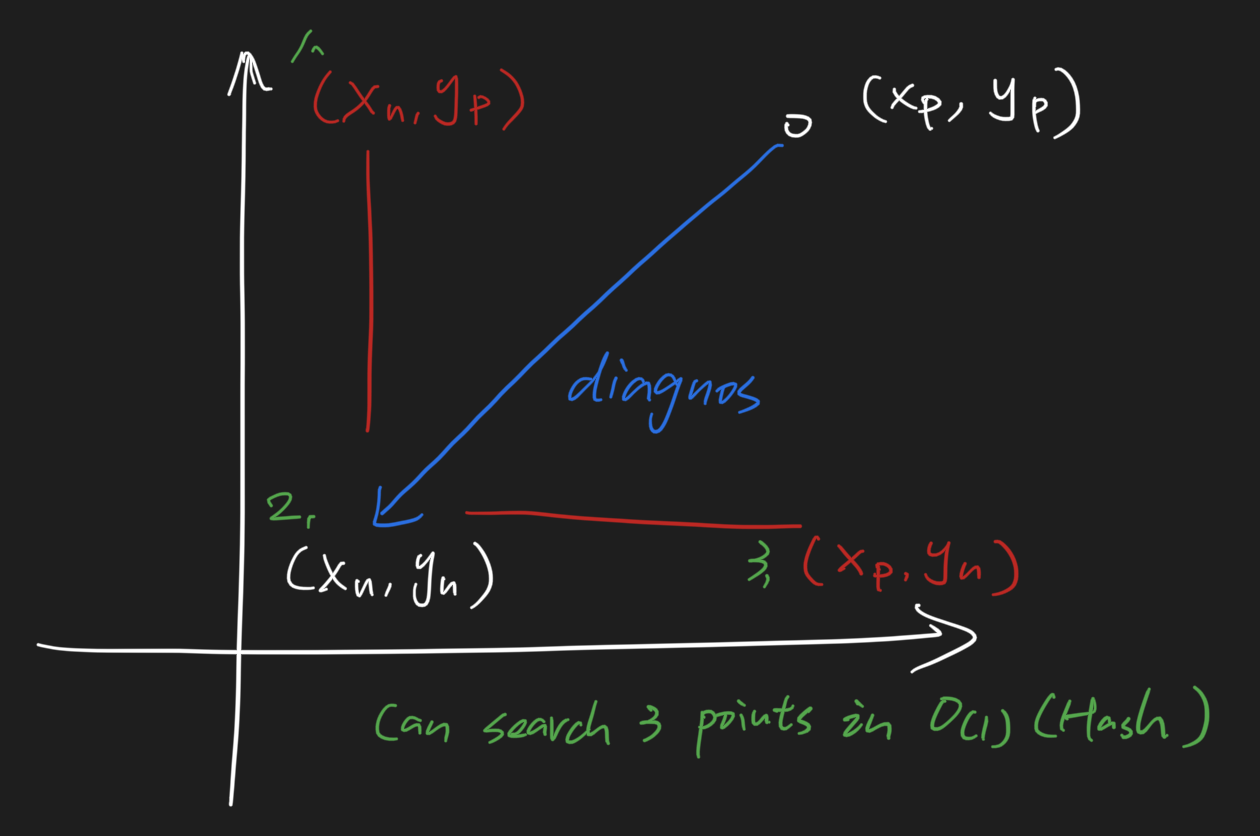 1.
(xn, yp)
(xp, yp)
diagnos
2.
(xn, yn)
3.
(xp, yn)
Can search 3 points in O(1) (Hash)